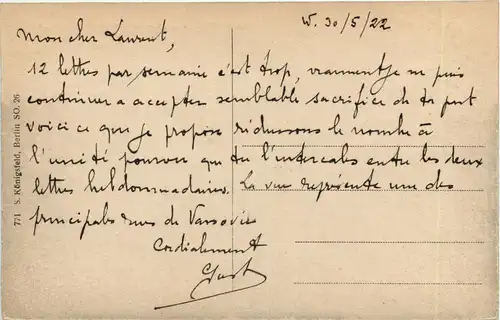 W. 30/5/22
Mon cher Laurent,
12 lettres par semaine c'est trop, vraiment je ne puis
continuer a accepter semblable sacrifice de ta part
voici ce que je propose réduisons le nombre à
l'unité pourvu que tu l'intercales entre les deux
lettres hebdomadaires. La vue représente une des
principales rues de Varsovie
Cordialement
Gust
771 S. Königsfeld, Berlin SO. 26